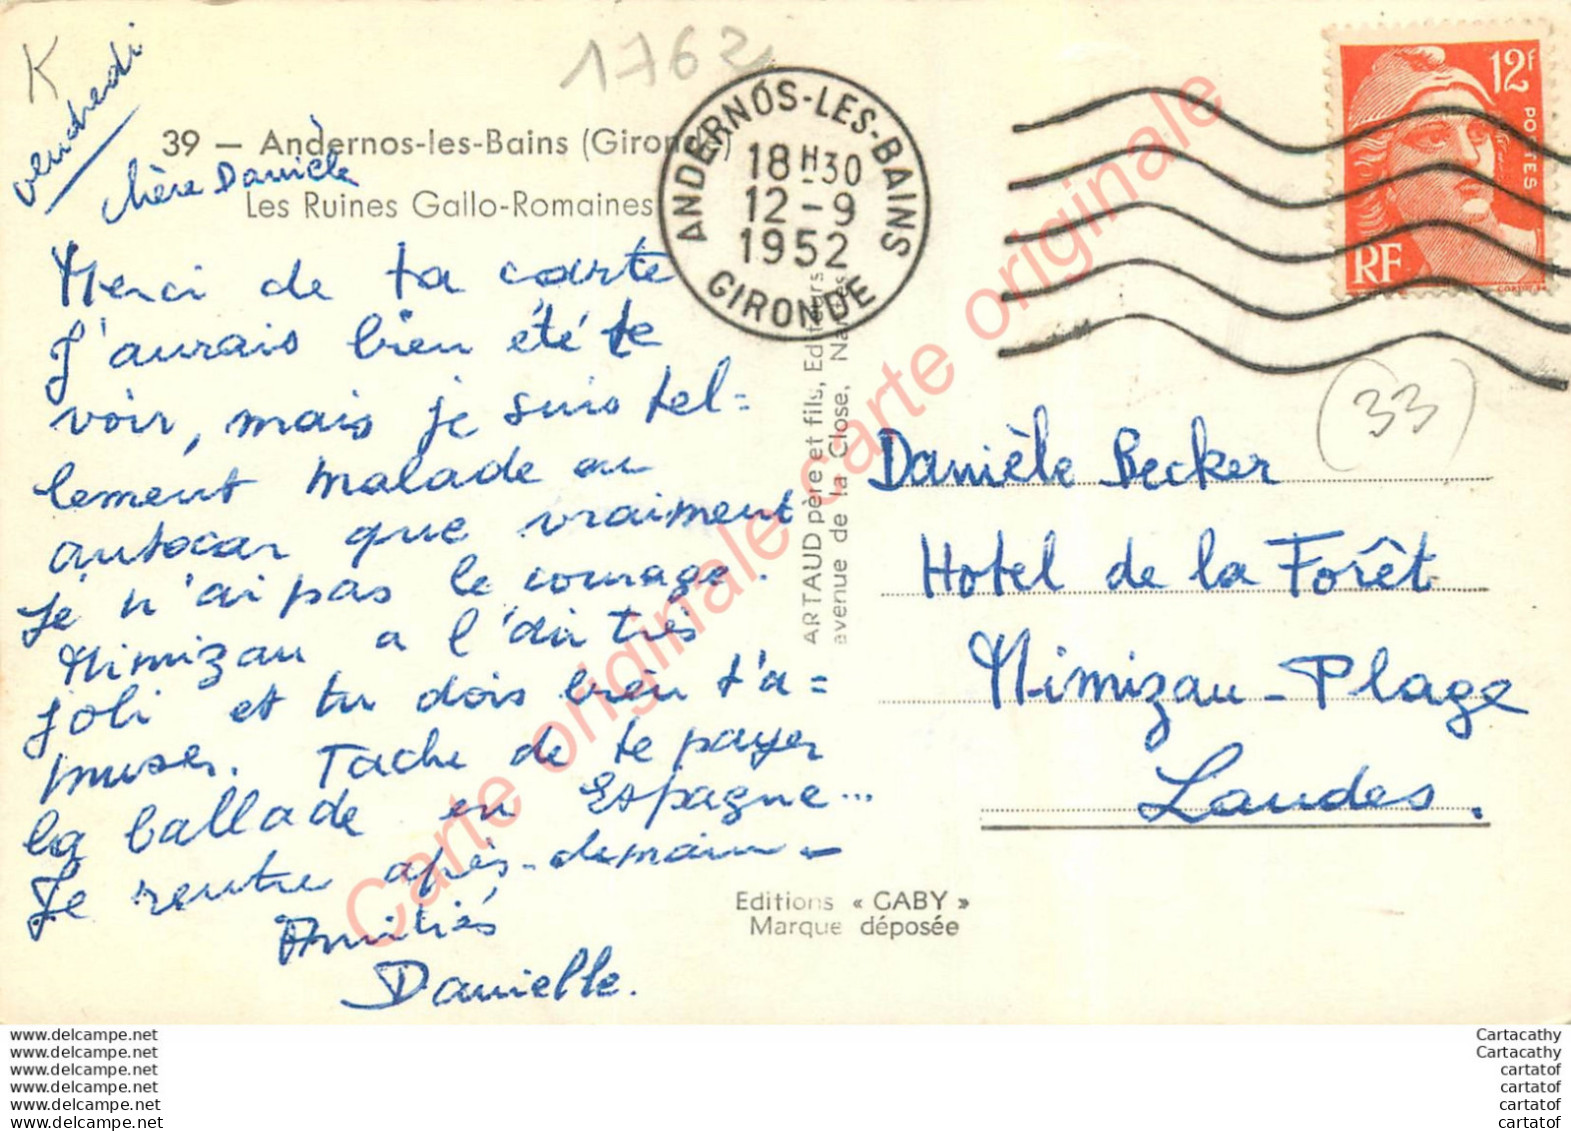 K
1762
vendredi
39 — Andernos-les-Bains (Gironde)
Les Ruines Gallo-Romaines
chère Danièle
Merci de ta carte
J'aurais bien été te
voir, mais je suis tel=
lement malade en
autocar que vraiment
Je n'ai pas le courage.
Mimizau a l'air très
joli et tu dois bien t'a=
muser. Tache de te payer
la ballade en Espagne...
Je rentre après-demain -
Amitiés
Danielle.
ANDERNOS-LES-BAINS
18H30
12-9
1952
GIRONDE
12F
POSTES
RF
(33)
ARTAUD père et fils, Editeurs
avenue de la Close, Nantes
Danièle Becker
Hotel de la Forêt
Mimizau-Plage
Landes.
Editions « GABY »
Marque déposée
Carte originale carte originale
www.delcampe.net
www.delcampe.net
www.delcampe.net
www.delcampe.net
www.delcampe.net
www.delcampe.net
Cartacathy
Cartacathy
cartatof
cartatof
cartatof
cartatof